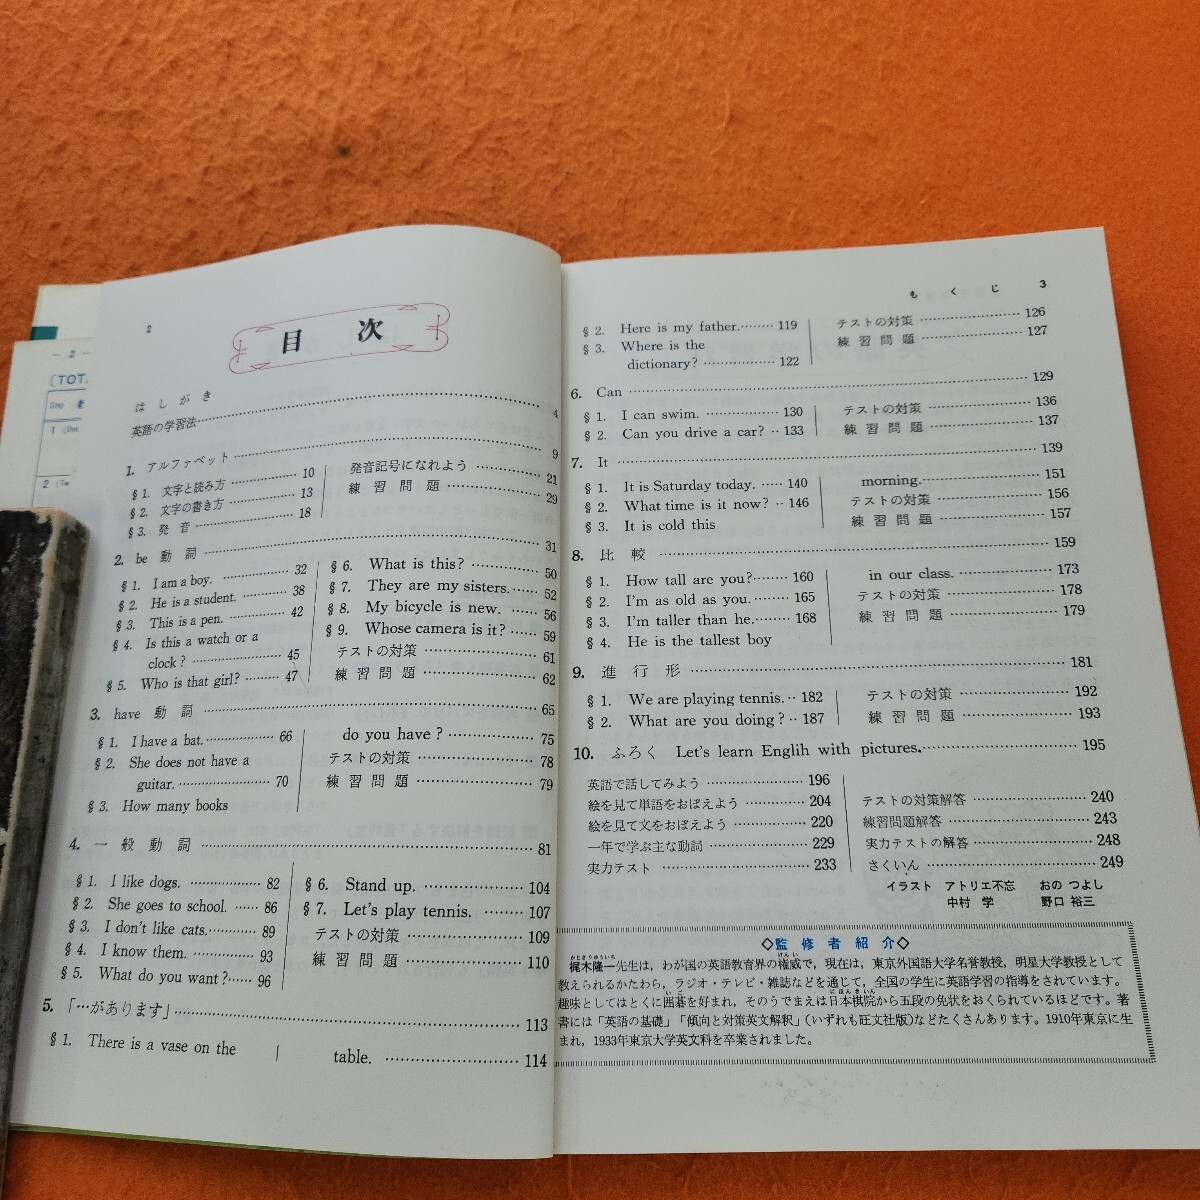 2
目 次
はしがき
英語の学習法 4
1. アルファベット 9
§1. 文字と読み方 10
§2. 文字の書き方 13
§3. 発音 18
発音記号になれよう 21
練習問題 29
2. be 動詞 31
§1. I am a boy. 32
§2. He is a student. 38
§3. This is a pen. 42
§4. Is this a watch or a
clock? 45
§5. Who is that girl? 47
§6. What is this? 50
§7. They are my sisters. 52
§8. My bicycle is new. 56
§9. Whose camera is it? 59
テストの対策 61
練習問題 62
3. have 動詞 65
§1. I have a bat. 66
§2. She does not have a
guitar. 70
§3. How many books
do you have? 75
テストの対策 78
練習問題 79
4. 一般動詞 81
§1. I like dogs. 82
§2. She goes to school. 86
§3. I don't like cats. 89
§4. I know them. 93
§5. What do you want? 96
§6. Stand up. 104
§7. Let's play tennis. 107
テストの対策 109
練習問題 110
5. 「…があります」 113
§1. There is a vase on the
table. 114
もくじ 3
§2. Here is my father. 119
§3. Where is the
dictionary? 122
テストの対策 126
練習問題 127
6. Can 129
§1. I can swim. 130
§2. Can you drive a car? 133
テストの対策 136
練習問題 137
7. It 139
§1. It is Saturday today. 140
§2. What time is it now? 146
§3. It is cold this
morning. 151
テストの対策 156
練習問題 157
8. 比較 159
§1. How tall are you? 160
§2. I'm as old as you. 165
§3. I'm taller than he. 168
§4. He is the tallest boy
in our class. 173
テストの対策 178
練習問題 179
9. 進行形 181
§1. We are playing tennis. 182
§2. What are you doing? 187
テストの対策 192
練習問題 193
10. ふろく Let's learn Englih with pictures. 195
英語で話してみよう 196
絵を見て単語をおぼえよう 204
絵を見て文をおぼえよう 220
一年で学ぶ主な動詞 229
実力テスト 233
テストの対策解答 240
練習問題解答 243
実力テストの解答 248
さくいん 249
イラスト アトリエ不忘 おの つよし
中村 学 野口 裕三
◇監修者紹介◇
梶木隆一先生は，わが国の英語教育界の権威で，現在は，東京外国語大学名誉教授，明星大学教授として
教えられるかたわら，ラジオ・テレビ・雑誌などを通じて，全国の学生に英語学習の指導をされています。
趣味としてはとくに囲碁を好まれ，そのうでまえは日本棋院から五段の免状をおくられているほどです。著
書には「英語の基礎」「傾向と対策英文解釈」（いずれも旺文社版）などたくさんあります。1910年東京に生
まれ，1933年東京大学英文科を卒業されました。
- 2 -
Step
1
2